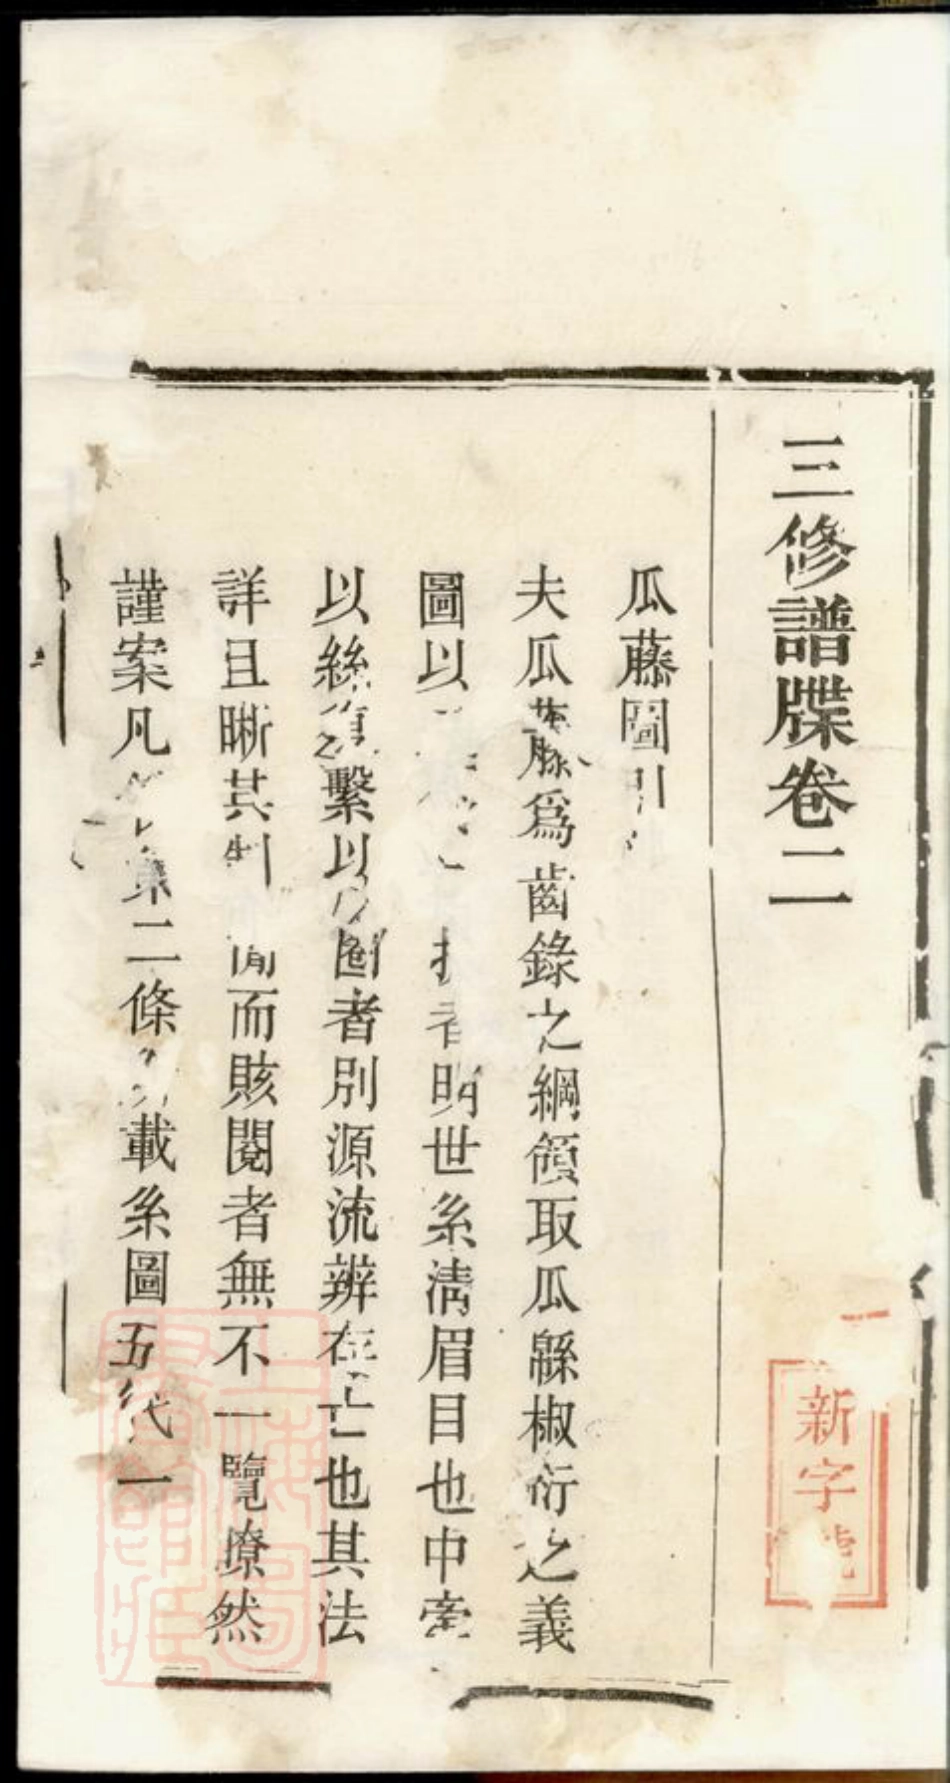 三修譜牒卷二
新字號
瓜藤圖引
夫瓜藤爲齒錄之綱領取瓜緜椒衍之義
圖以者明世系淸眉目也中旁
以絲繫以圈者別源流辨存亡也其法
詳且晰其制簡而賅閱者無不一覽療然
謹案凡第二條載系圖五代一
上海圖書館藏